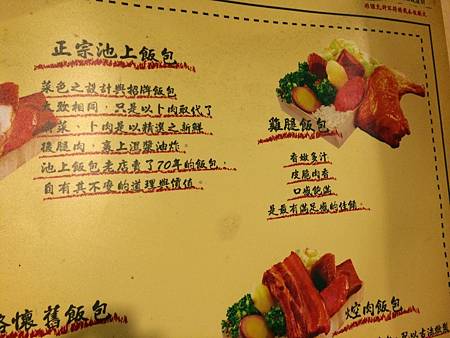 正宗池上飯包
菜色之設計與招牌飯包
大致相同，只是以卜肉取代了
菜、卜肉是以精選之新鮮
後腿肉，裹上濕漿油炸。
池上飯包老店賣了70年的飯包，
自有其不廢的道理與價值。
雞腿飯包
香嫩多汁
皮脆肉香
口感飽滿
是最有滿足感的佳餚。
懷舊飯包
焢肉飯包